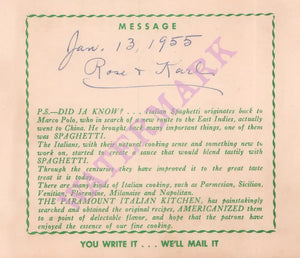 MESSAGE
Jan. 13, 1955
Rose & Karl
P.S.—DID JA KNOW? . . . Italian Spaghetti originates back to
Marco Polo, who in search of a new route to the East Indies, actually
went to China. He brought back many important things, one of them
was SPAGHETTI.
The Italians, with their natural cooking sense and something new to
work on, started to create a sauce that would blend tastily with
SPAGHETTI.
Through the centuries they have improved it to the great taste
treat it is today.
There are many kinds of Italian cooking, such as Parmesian, Sicilian,
Venitian, Florentine, Milanaise and Napolitan.
THE PARAMOUNT ITALIAN KITCHEN, has painstakingly
searched and obtained the original recipes, AMERICANIZED them
to a point of delectable flavor, and hope that the patrons have
enjoyed the essence of our fine cooking.
YOU WRITE IT . . . WE'LL MAIL IT
WATERMARK